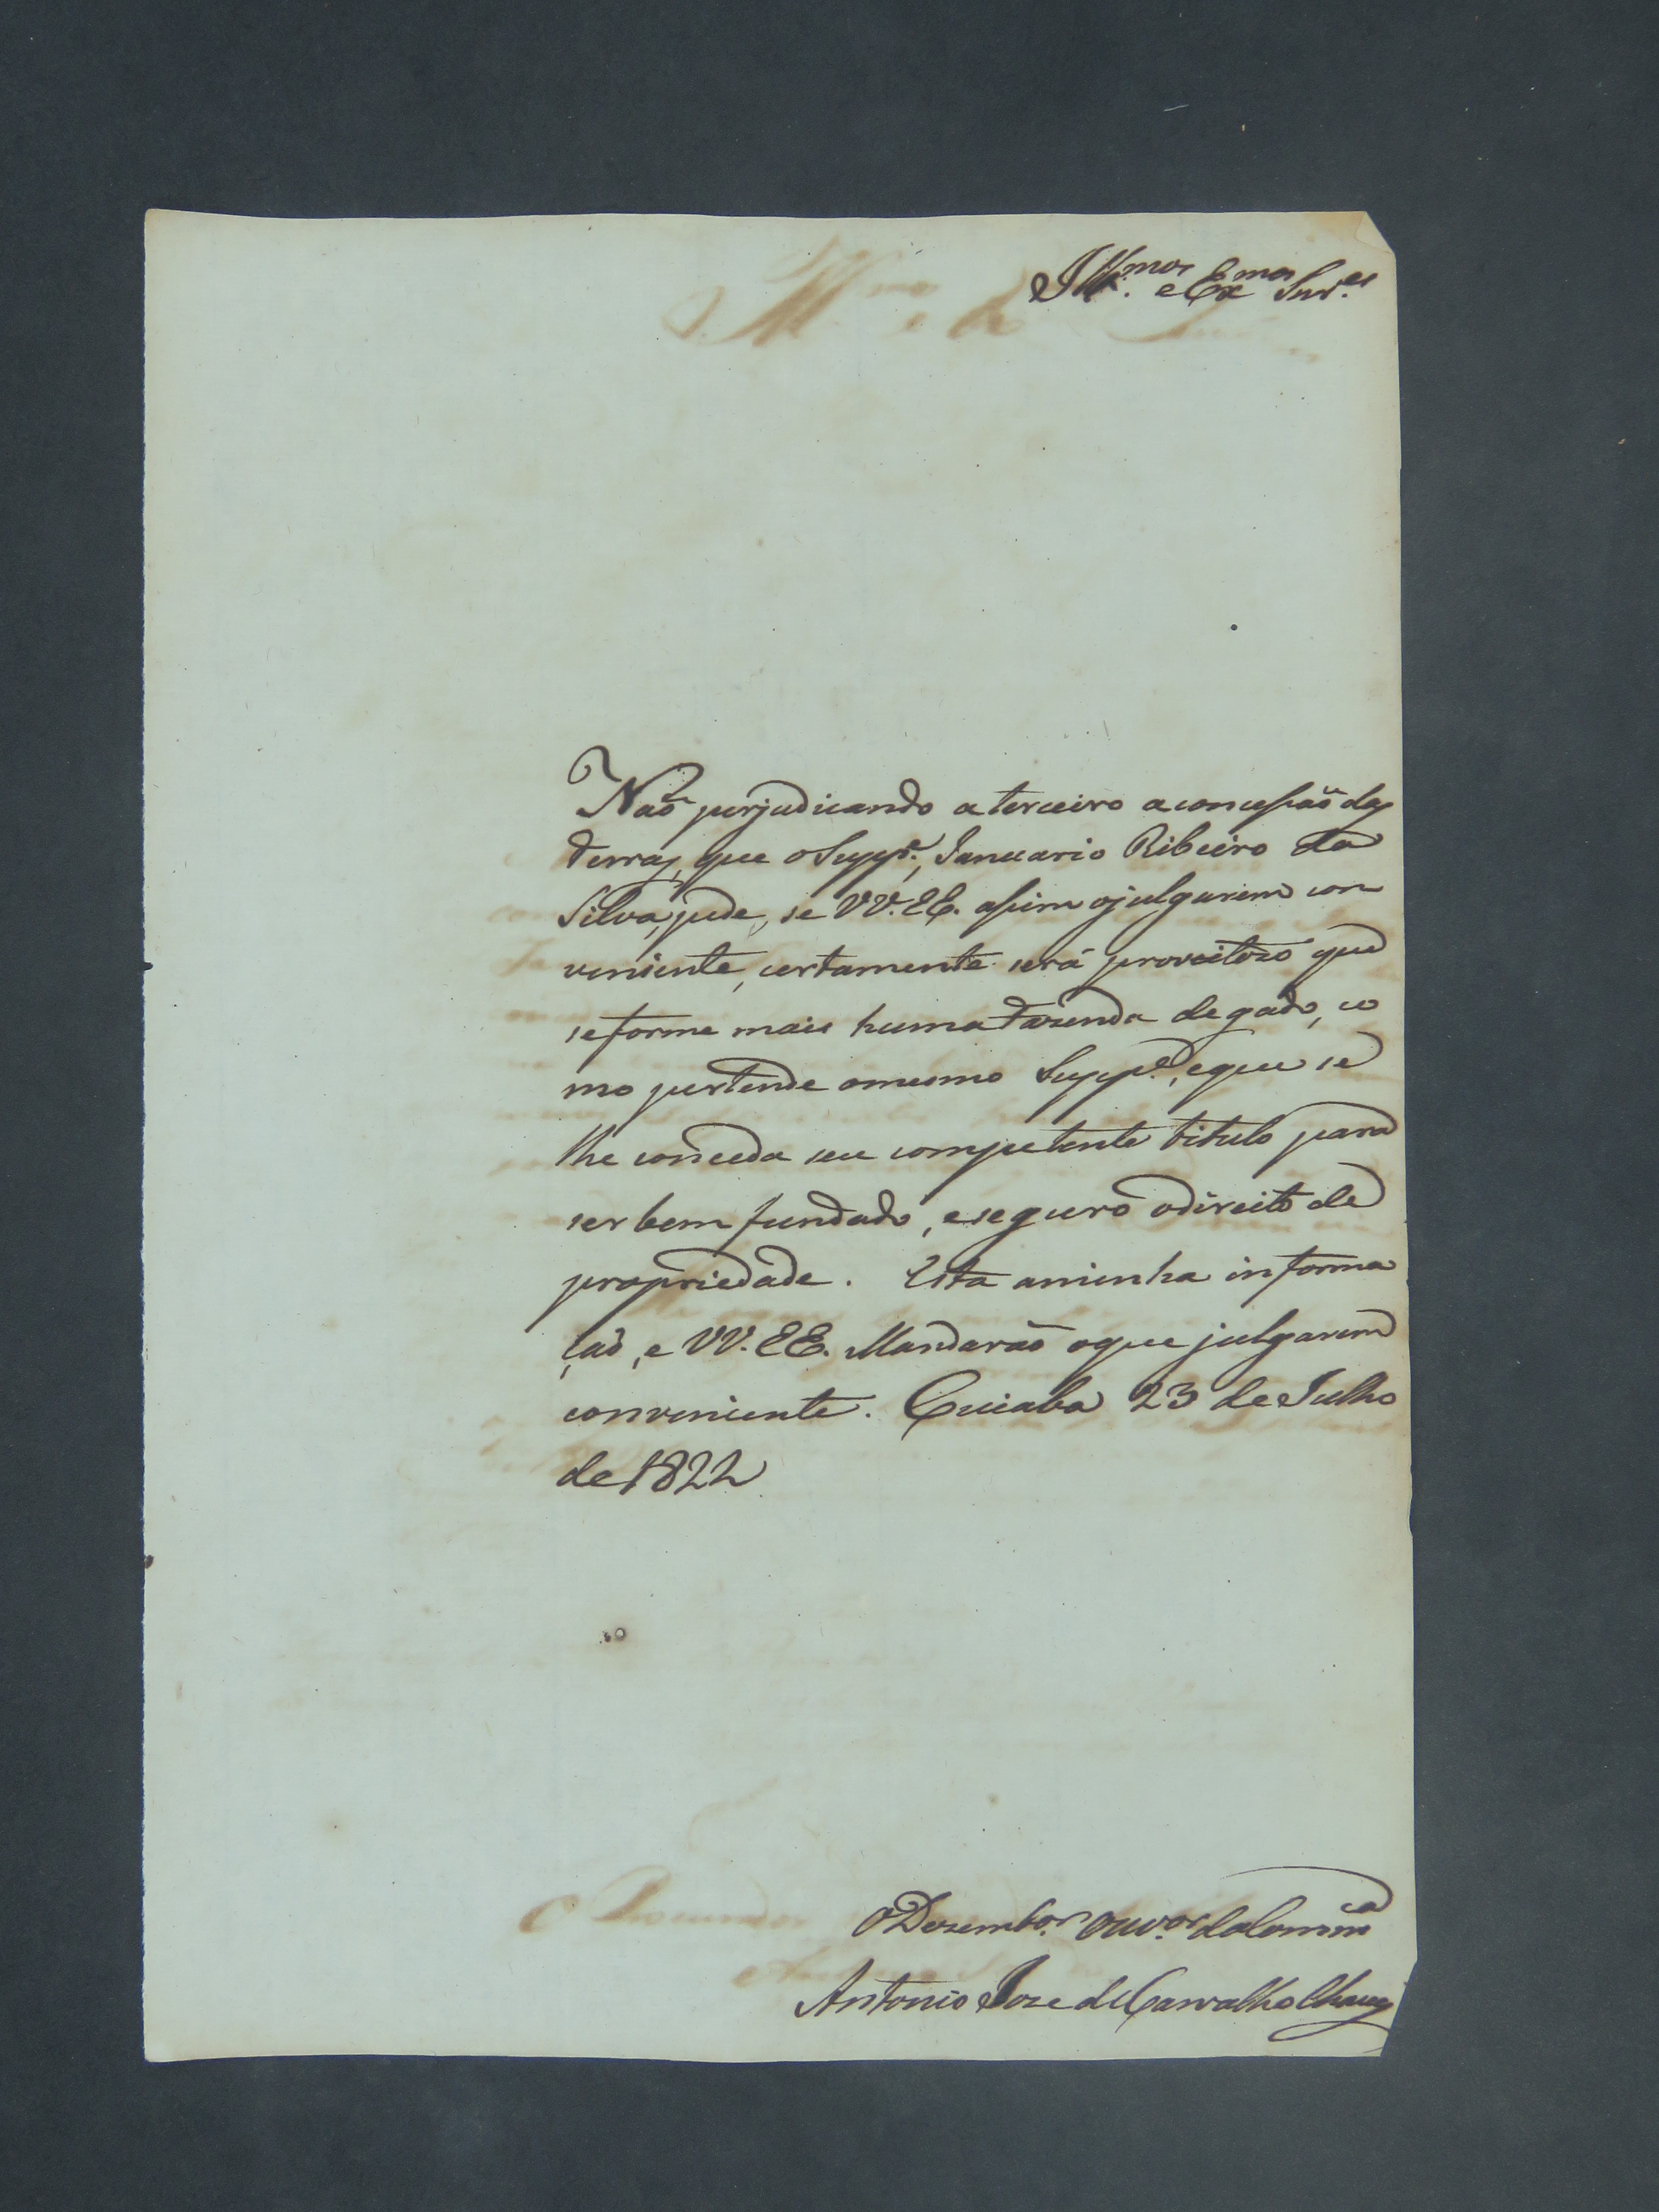 Ill.mos e Ex.mos Snr.es
Não perjudicando a terceiro a concessão das
terras, que o Supp.e, Januario Ribeiro da
Silva, pede, se VV. EE. assim o julgarem con
veniente, certamente será proveitozo que
se forme mais huma Fazenda de gado, co
mo pertende o mesmo Supp.e, e que se
lhe conceda seu competente titulo para
ser bem fundado, e seguro o direito de
propriedade. Esta a minha informa
ção, e VV. EE. Mandarão o que julgarem
conveniente. Cuiaba 23 de Julho
de 1822
O Dezemb.or Ouv.or da Com.ca
Antonio Joze de Carvalho Chaves